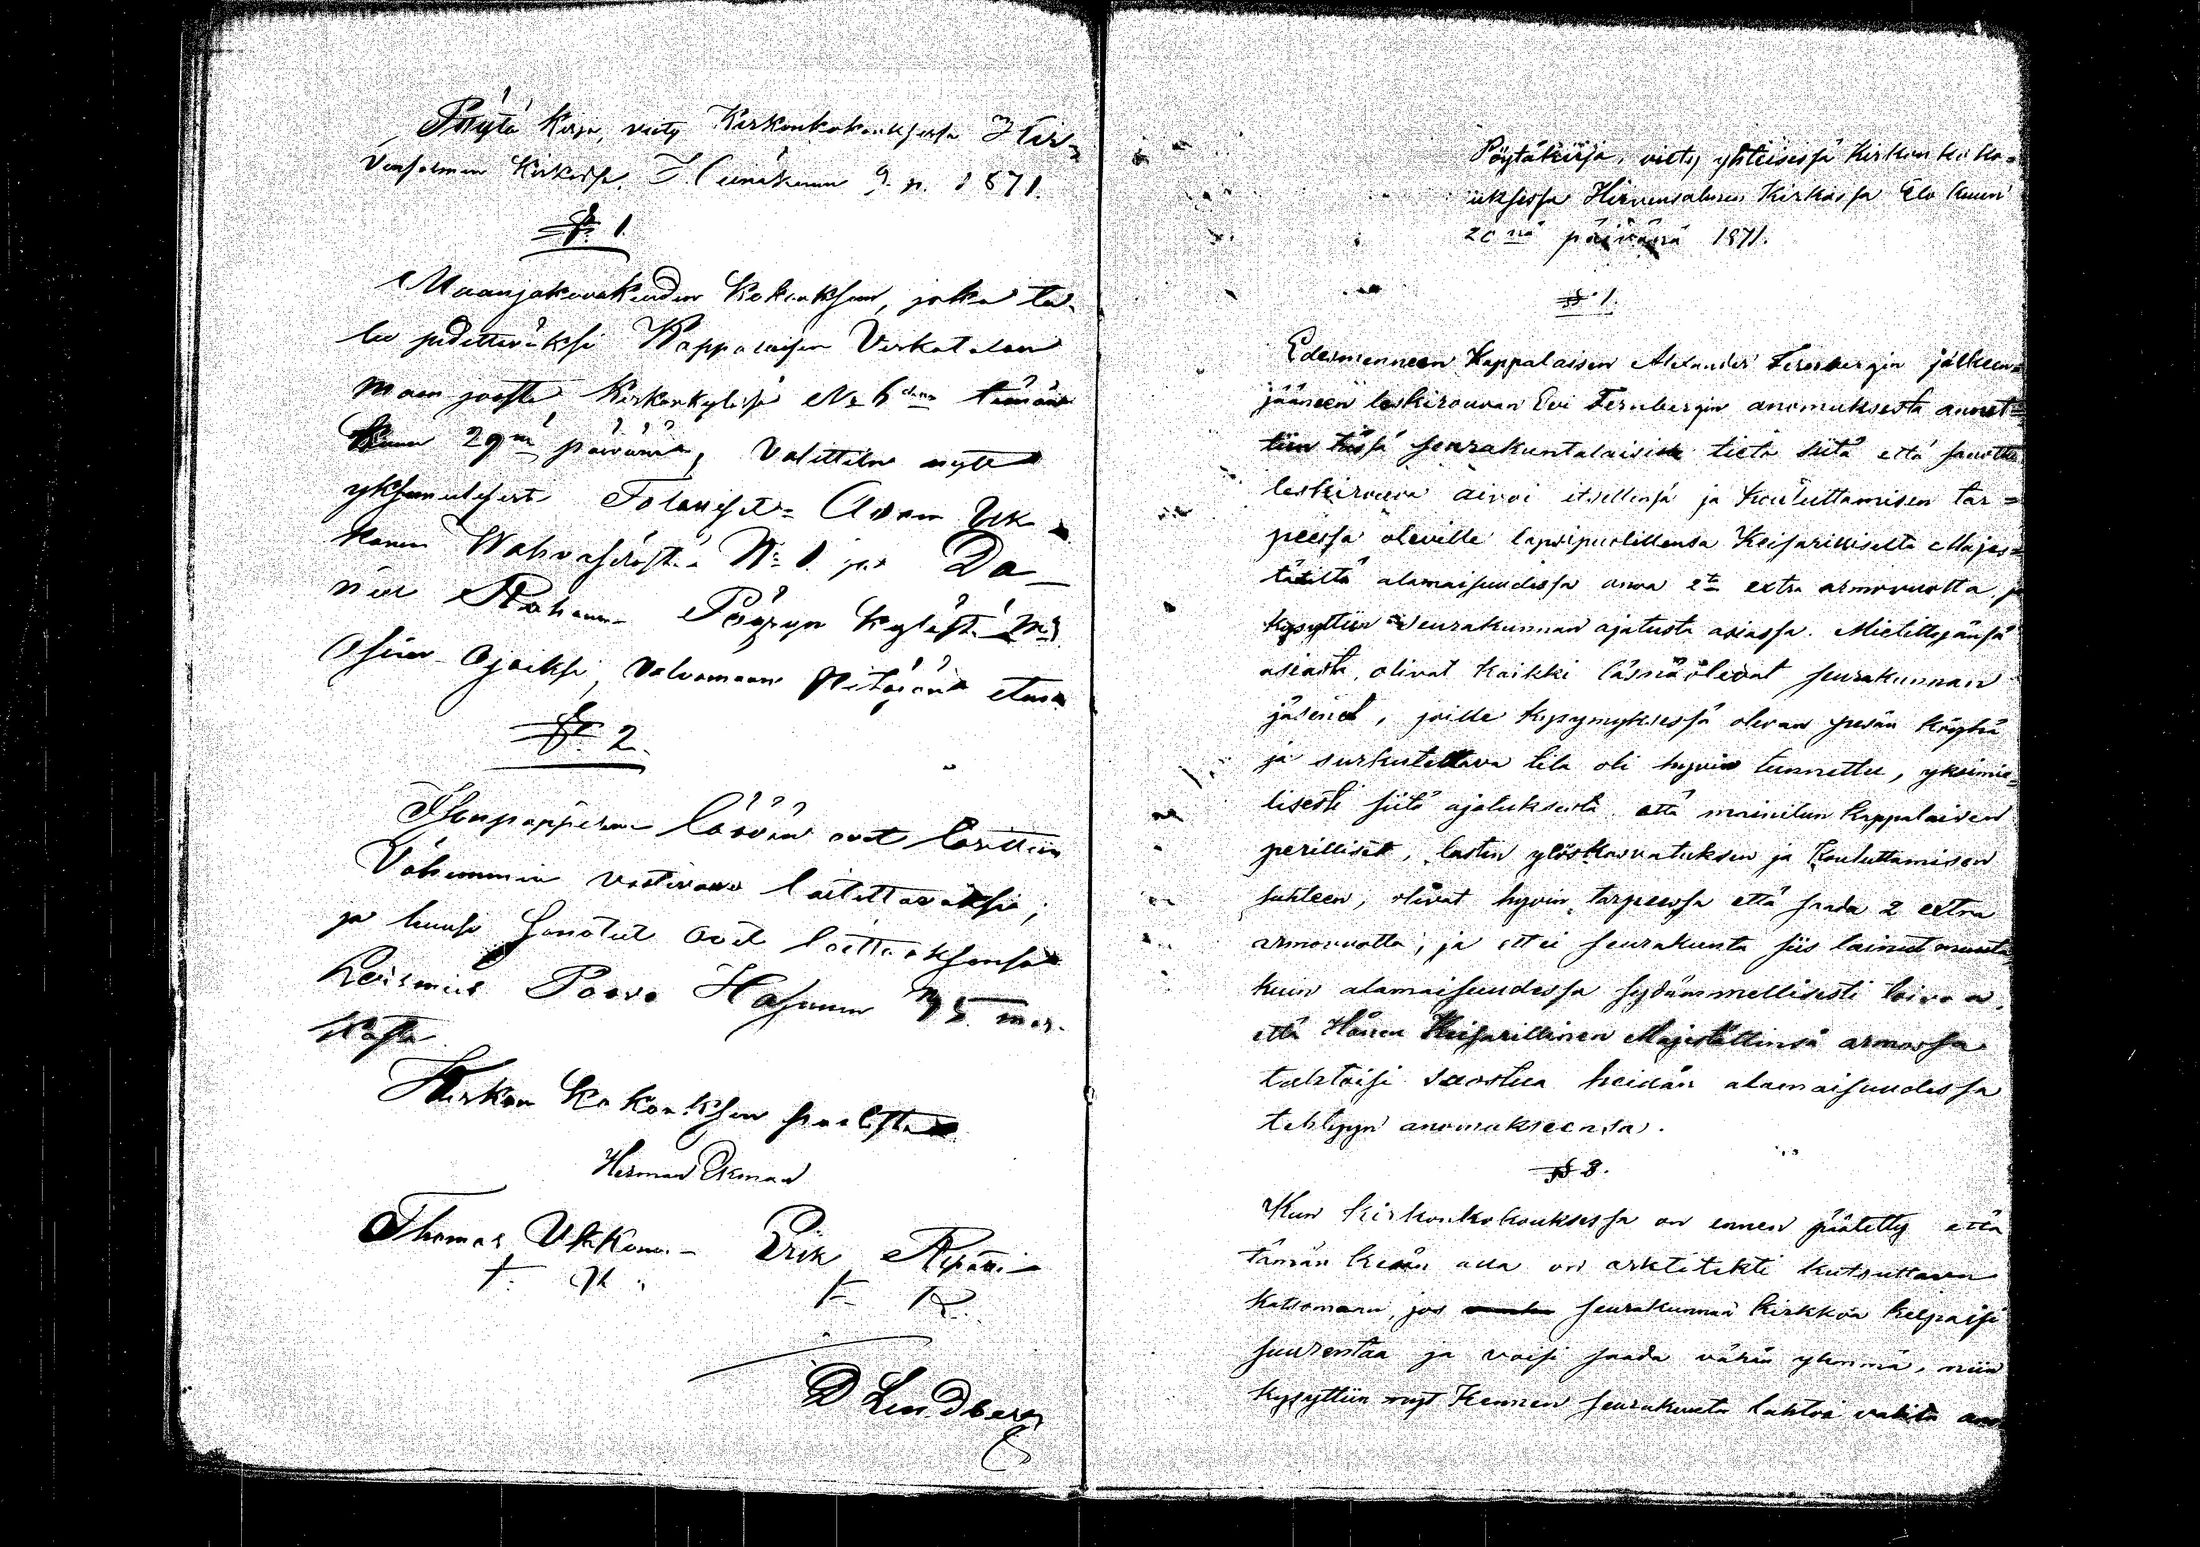 Pöytä kirja, viety Kirkonkokouksessa Hir-
vensalmen Kirkossa Heinäkuun 9 p. 1871.
§ 1
Maanjakokunden Kokouksen, joka tu-
lee pidettäväksi Kappalaisen Virkatalon
maan jaosta Kirkonkylässä No 6 tämän
Kuun 29nä päivänä, valittiin nytt
yksimielisesti Talonisét Adam Uk-
konen Wahvaselästä No 1 ja Da-
niel Pöyryn kylästä
Asian Ajaiksi, valvomaan Pitäjän etua
§ 2.
Isonpappilan läävän ovet
Vähemmin vaativan laitettavaksi;
ja huusi sanotut ovet laittaaksensa
Loismies Paavo Hasunen 75 mar-
kasta.
Kirkon Kokouksen puolesta
Herman Ekman
Thomas Ukkonen Erik
D Lindberg
Pöytäkirja, viety yhteisessä Kirkon koko-
uksessa Hirvensalmen Kirkossa Elo kuun
20 nä päivänä 1871.
§ 1.
Edesmenneen Kappalaisen Alexander Fernbergin jälkeen-
jääneen leskirouvan Evi Fernbergin anomuksesta annet-
tiin tässä seurakuntalaisille tieto siitä että sanottu
leskirouva aivoi itsellensä ja Kouluttamisen tar-
peessa oleville lapsipuolillensa Keisarilliselta Majes-
tätiltä alamaisuudessa anoa 2ta extra armovuotta, ja
kysyttiin seurakunnan ajatusta asiassa. Mietittyänsä
asiasta, olivat kaikki läsnäolevat seurakunnan
jäsenet, joille kysymyksessä olevan pesän köyhä
ja surkuteltava tila oli hyvin tunnettu, yksimie-
lisesti siitä ajatuksesta että mainitun kappalaisen
perilliset, lasten ylöskasvatuksen ja Kouluttamisen
suhteen, olivat hyvin tarpeessa että saada 2 extra
armovuotta; ja ettei seurakunta siis tainnut muuta
kuin alamaisuudessa sydämmellisesti toivoa,
että Hänen Keisarillinen Majestättinsä armossa
tahtoisi suostua heidän alamaisuudessa
tehtyyn anomukseensa.
§ 2.
Kun kirkonkokouksessa on ennen päätetty että
tämän kesän aikana on arkitekti kutsuttava
katsomaan, jos seurakunnan kirkkoa kelpaisi
suurentaa ja voisi saada väkiä ylemmä, niin
kysyttiin nyt Kennen seurakunta tahtoi valita